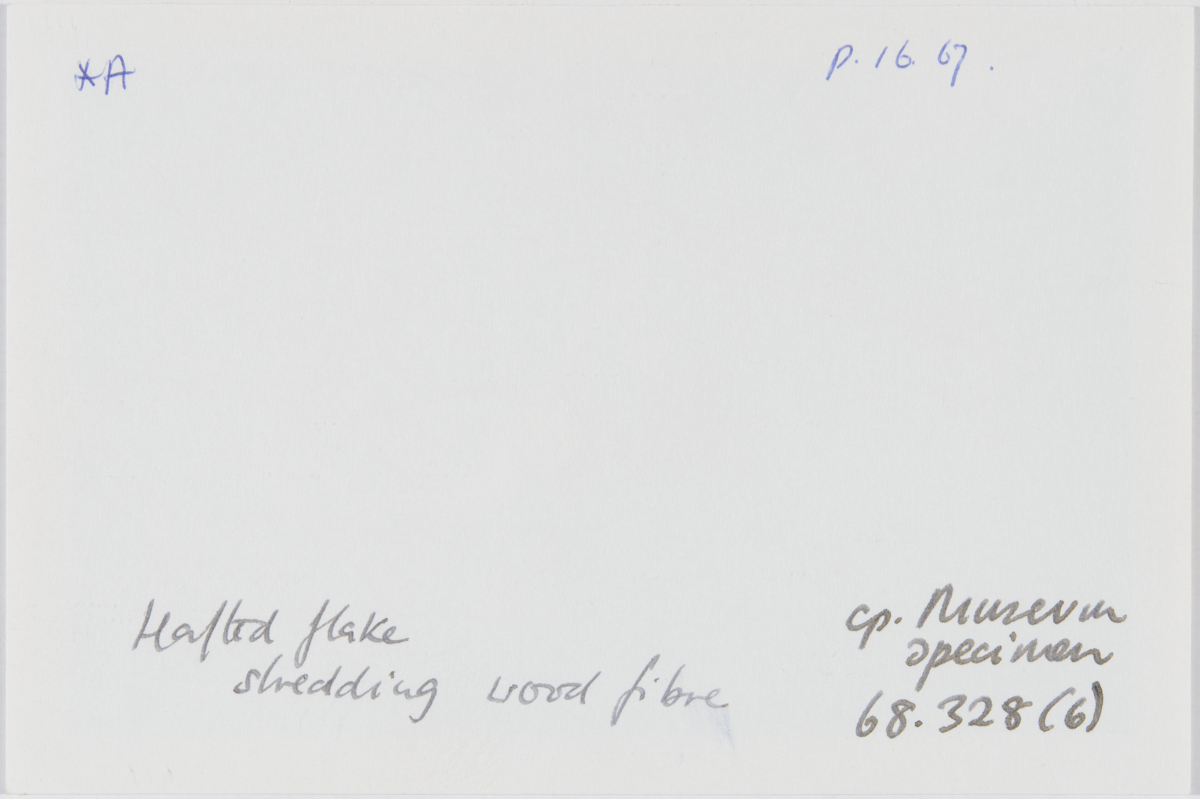 *A
P. 16. 67.
Hafted flake
shredding wood fibre
cp. Museum
specimen
68.328 (6)